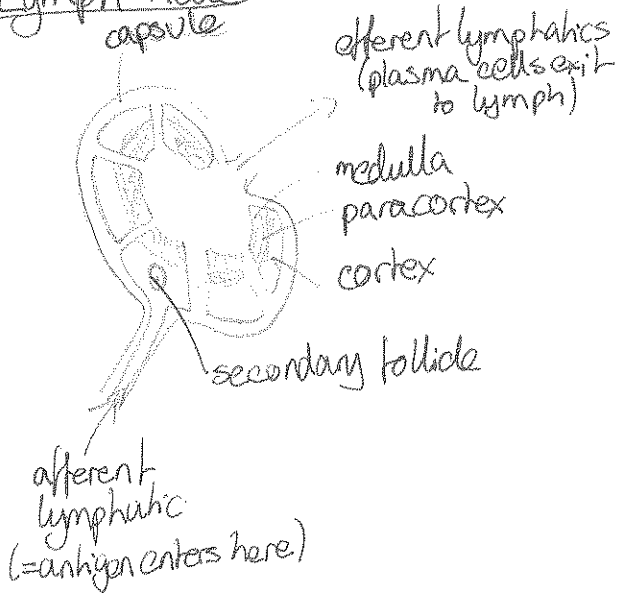 Lymph node
capsule
efferent lymphatics
(plasma cells exit
to lymph)
medulla
paracortex
cortex
secondary follicle
afferent
lymphatic
(=antigen enters here)